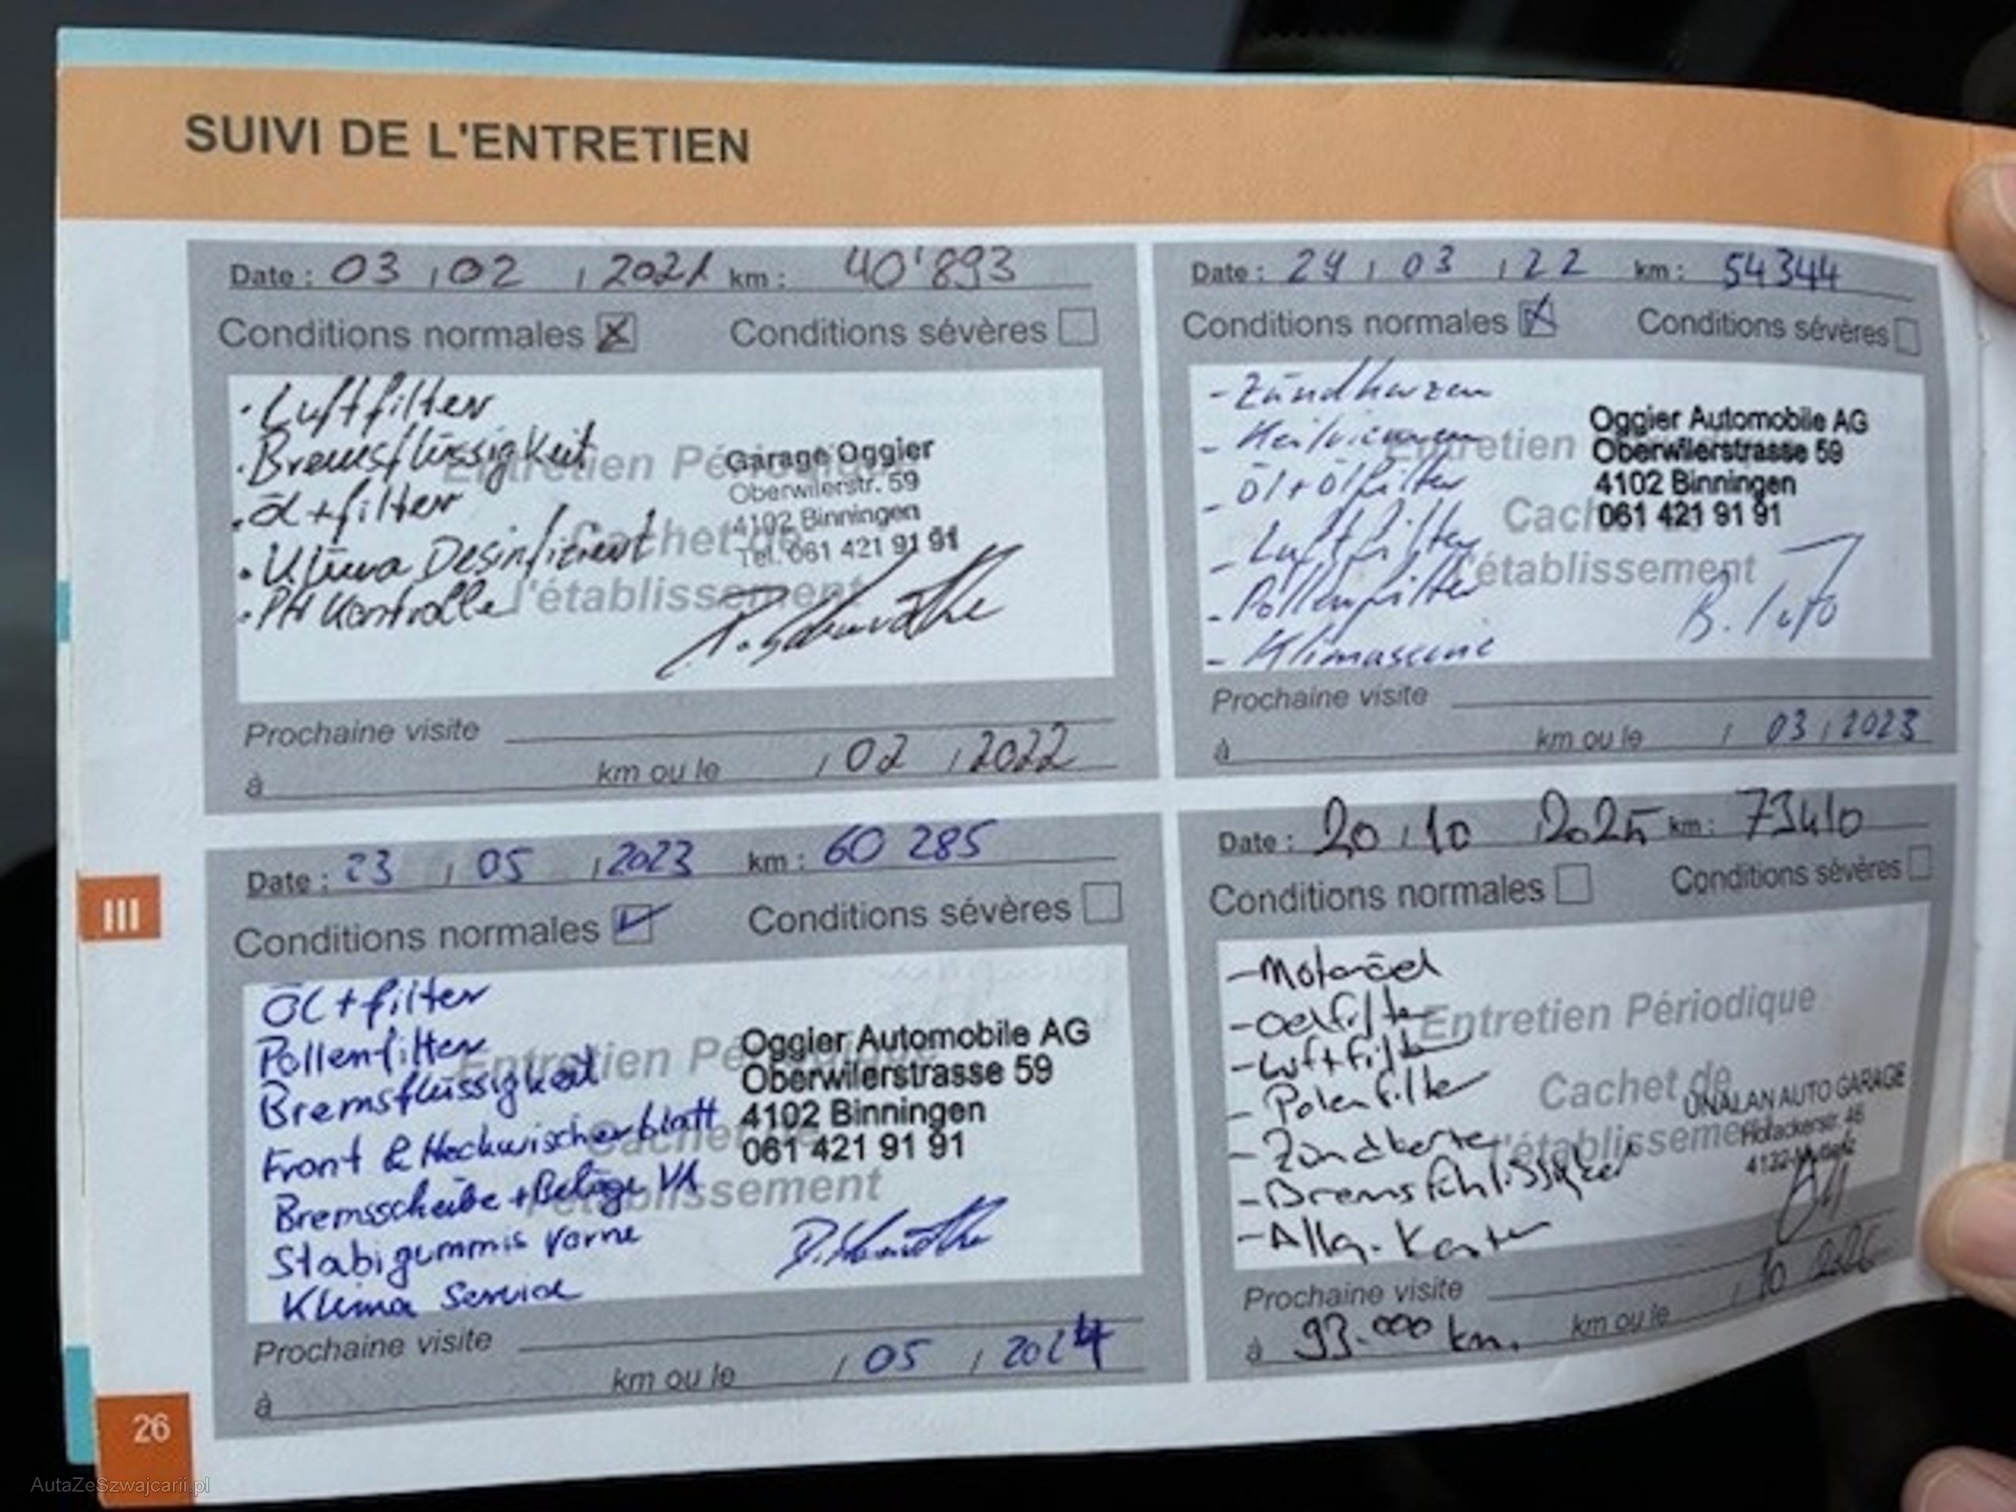 SUIVI DE L'ENTRETIEN
Date : 03 / 02 / 2021 km : 40'893
Conditions normales Conditions sévères
· Luftfilter
· Bremsflüssigkeit
· Öl + filter
· Desinfiziert
· PH Kontrolle
Entretien Périodique
Cachet de
l'établissement
Garage Oggier
Oberwilerstr. 59
4102 Binningen
Tel. 061 421 91 91
Prochaine visite
à km ou le / 02 / 2022
Date : 29 / 03 / 22 km : 54344
Conditions normales Conditions sévères
- Zündkerzen
- Öl + Ölfilter
- Luftfilter
- Pollenfilter
- Klimaservic
Entretien
Cachet
l'établissement
Oggier Automobile AG
Oberwilerstrasse 59
4102 Binningen
061 421 91 91
Prochaine visite
à km ou le / 03 / 2023
III
Date : 23 / 05 / 2023 km : 60 285
Conditions normales Conditions sévères
Öl + filter
Pollenfilter
Bremsflüssigkeit
Front & Heckwischerblatt
Bremsscheibe + Beläge VA
Stabigummis vorne
Klima Service
Entretien Périodique
Cachet de
l'établissement
Oggier Automobile AG
Oberwilerstrasse 59
4102 Binningen
061 421 91 91
Prochaine visite
à km ou le / 05 / 2024
Date : 20 / 10 2025 km : 73410
Conditions normales Conditions sévères
- Motoröel
- Oelfilter
- Luftfilter
- Polenfilter
- Zündkerze
- Allg.
Entretien Périodique
Cachet de
l'établissement
ÜNALAN AUTO GARAGE
4132 Muttenz
Prochaine visite
à 93.000 km. km ou le / 10 2026
26
AutaZeSzwajcarii.pl